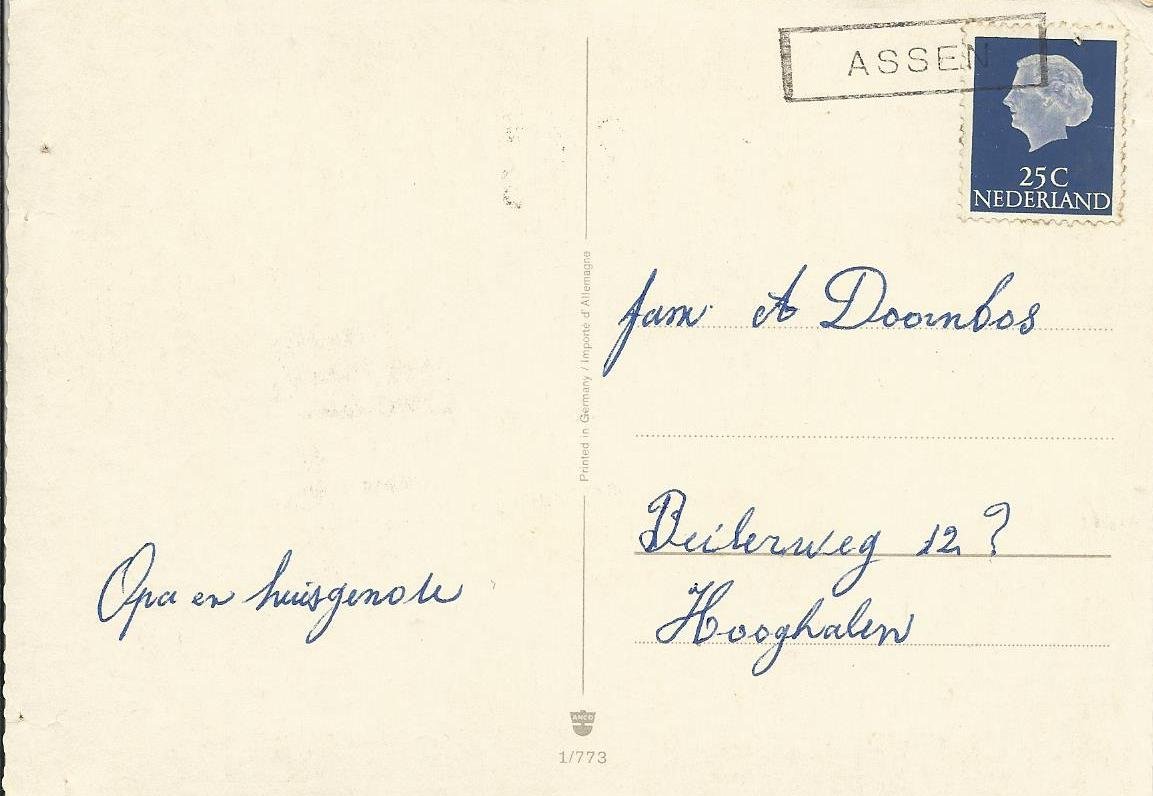 ASSEN
25 C
NEDERLAND
fam A Doornbos
Beilerweg 12?
Hooghalen
Opa en huisgenote
Printed in Germany / Importé d'Allemagne
ANCO
1/773